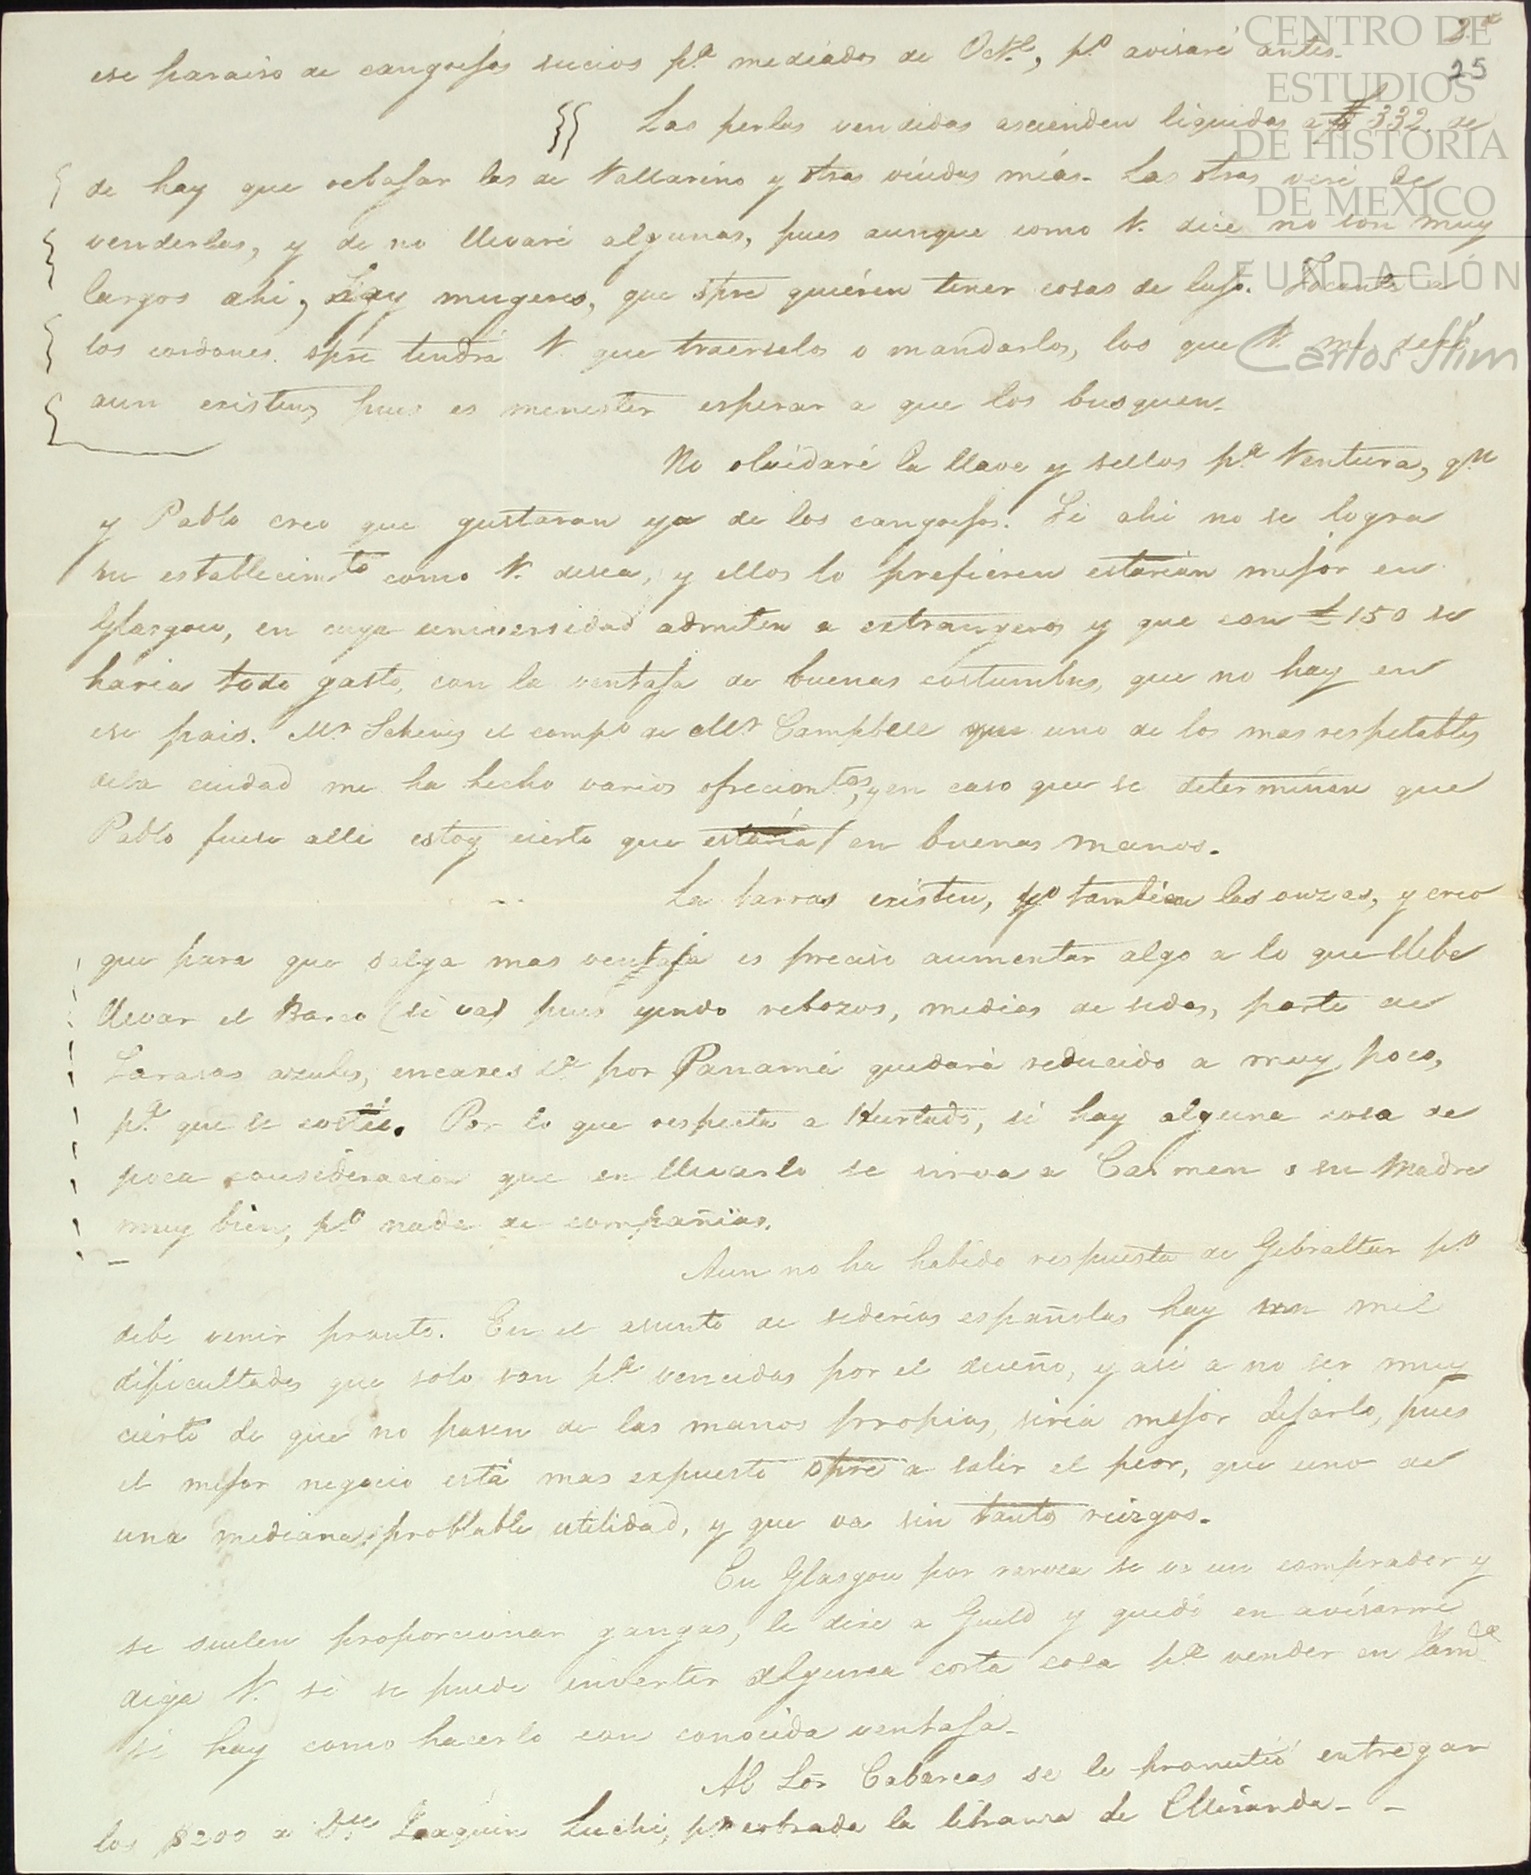 2ª
25
ese paraiso de cangrejos sucios pª mediados de Octe, pº avisaré antes.
Las perlas vendidas ascienden liquidas a $ 332, de
de hay que rebajar las de Vallarino y otras viudas mias. Las otras veré de
venderlas, y de no llevaré algunas, pues aunque como V. dice no son muy
largos ahi, hay mugeres, que spre quiéren tener cosas de lujo. Tocante a
los cordones. spre tendrá V. que traerselos o mandarlos, los que V. me dejó
aun existen, pues es menester esperar a que los busquen.
No olvidaré la llave y sellos pª Ventura, qn
y Pablo creo que gustaran ya de los cangrejos. Si ahi no se logra
su establecimto como V. desea, y ellos lo prefiéren estarian mejor en
Glasgow, en cuya universidad admiten a extrangeros y que con £150 se
haria todo gasto, con la ventaja de buenas costumbres, que no hay en
ese pais. Mr el compº de Mr Campbell que uno de los mas respetables
dela ciudad me ha hecho varios ofrecimtos, y en caso que se determinen que
Pablo fuese alli estoy cierto que estaria en buenas manos.
La barras existen, yº tambien las onzas, y creo
que para que salga mas ventaja es preciso aumentar algo a lo que llebe
llevar el Barco (si va) pues yendo rebozos, medias de sedas, parte de
Zarasas azules, encaxes &ª por Panamá quedará reducido a muy poco,
pª que le costée. Por lo que respecta a Hurtado, si hay alguna cosa de
poca consideracion que en llevarlo se sirva a Carmen o su Madre
muy bien, pº nada de compañias.
Aun no ha habido respuesta de Gibraltar pº
debe venir pronto. En el asunto de sederias españolas hay mil
dificultades que solo son pª vencidas por el dueño, y asi a no ser muy
cierto de que no pasen de las manos propias, seria mejor dejarlo, pues
el mejor negocio está mas expuesto spre a salir el peor, que uno de
una mediana probbable utilidad, y que va sin tantos riezgos.
En Glasgow por rareza se ve un comprador y
se suelen proporcionar gangas, le dixe a Guild y quedó en avisarme
diga V. si se puede invertir alguna corta cosa pª vender en Jamª
si hay como hacerlo con conocida ventaja.
Al Sor Cabarcas se le prometió entregar
los $200 a Dn Joaquin Luchi, pº cobrada la libranza de Miranda - -
CENTRO DE
ESTUDIOS
DE HISTORIA
DE MEXICO
FUNDACIÓN
Carlos Slim